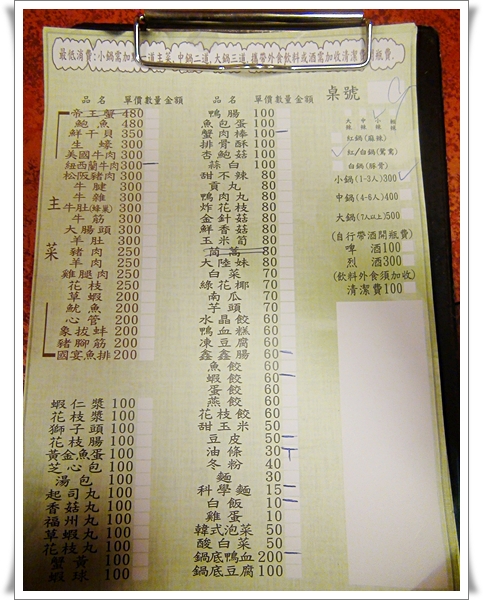 最低消費:小鍋需加點一道主菜,中鍋二道,大鍋三道,攜帶外食飲料或酒需加收清潔費開瓶費
品名 單價數量金額
帝王蟹 480
鮑魚 480
鮮干貝 350
生蠔 300
美國牛肉 300
紐西蘭牛肉 300
松阪豬肉 300
牛腱 300
牛雜 300
主菜
牛肚(蜂巢) 300
牛筋 300
大腸頭 300
羊肚 300
豬肉 250
羊肉 250
雞腿肉 250
花枝 250
草蝦 200
魷魚 200
心管 200
象拔蚌 200
豬腳筋 200
國宴魚排 200
蝦仁漿 100
花枝漿 100
獅子頭 100
花枝腸 100
黃金魚蛋 100
芝心包 100
湯包 100
起司丸 100
香菇丸 100
福州丸 100
草蝦丸 100
花枝丸 100
蟹黃 100
蝦球 100
品名 單價數量金額
鴨腸 100
魚包蛋 100
蟹肉棒 100
排骨酥 100
杏鮑菇 100
蒜白 100
甜不辣 80
貢丸 80
鴨肉丸 80
炸花枝 80
金針菇 80
鮮香菇 80
玉米筍 80
茼蒿 80
大陸妹 80
白菜 70
綠花椰 70
南瓜 70
芋頭 70
水晶餃 60
鴨血糕 60
凍豆腐 60
鑫鑫腸 60
魚餃 60
蝦餃 60
蛋餃 60
燕餃 60
花枝餃 60
甜玉米 50
豆皮 50
油條 30
冬粉 40
麵 30
科學麵 15
白飯 10
雞蛋 10
韓式泡菜 50
酸白菜 50
鍋底鴨血 200
鍋底豆腐 100
桌號
大辣 中辣 小辣
紅鍋(麻辣)
紅/白鍋(鴛鴦)
白鍋(豚骨)
小鍋(1-3人)300
中鍋(4-6人)400
大鍋(7人以上)500
(自行帶酒開瓶費)
啤酒100
烈酒300
(飲料外食須加收)
清潔費100